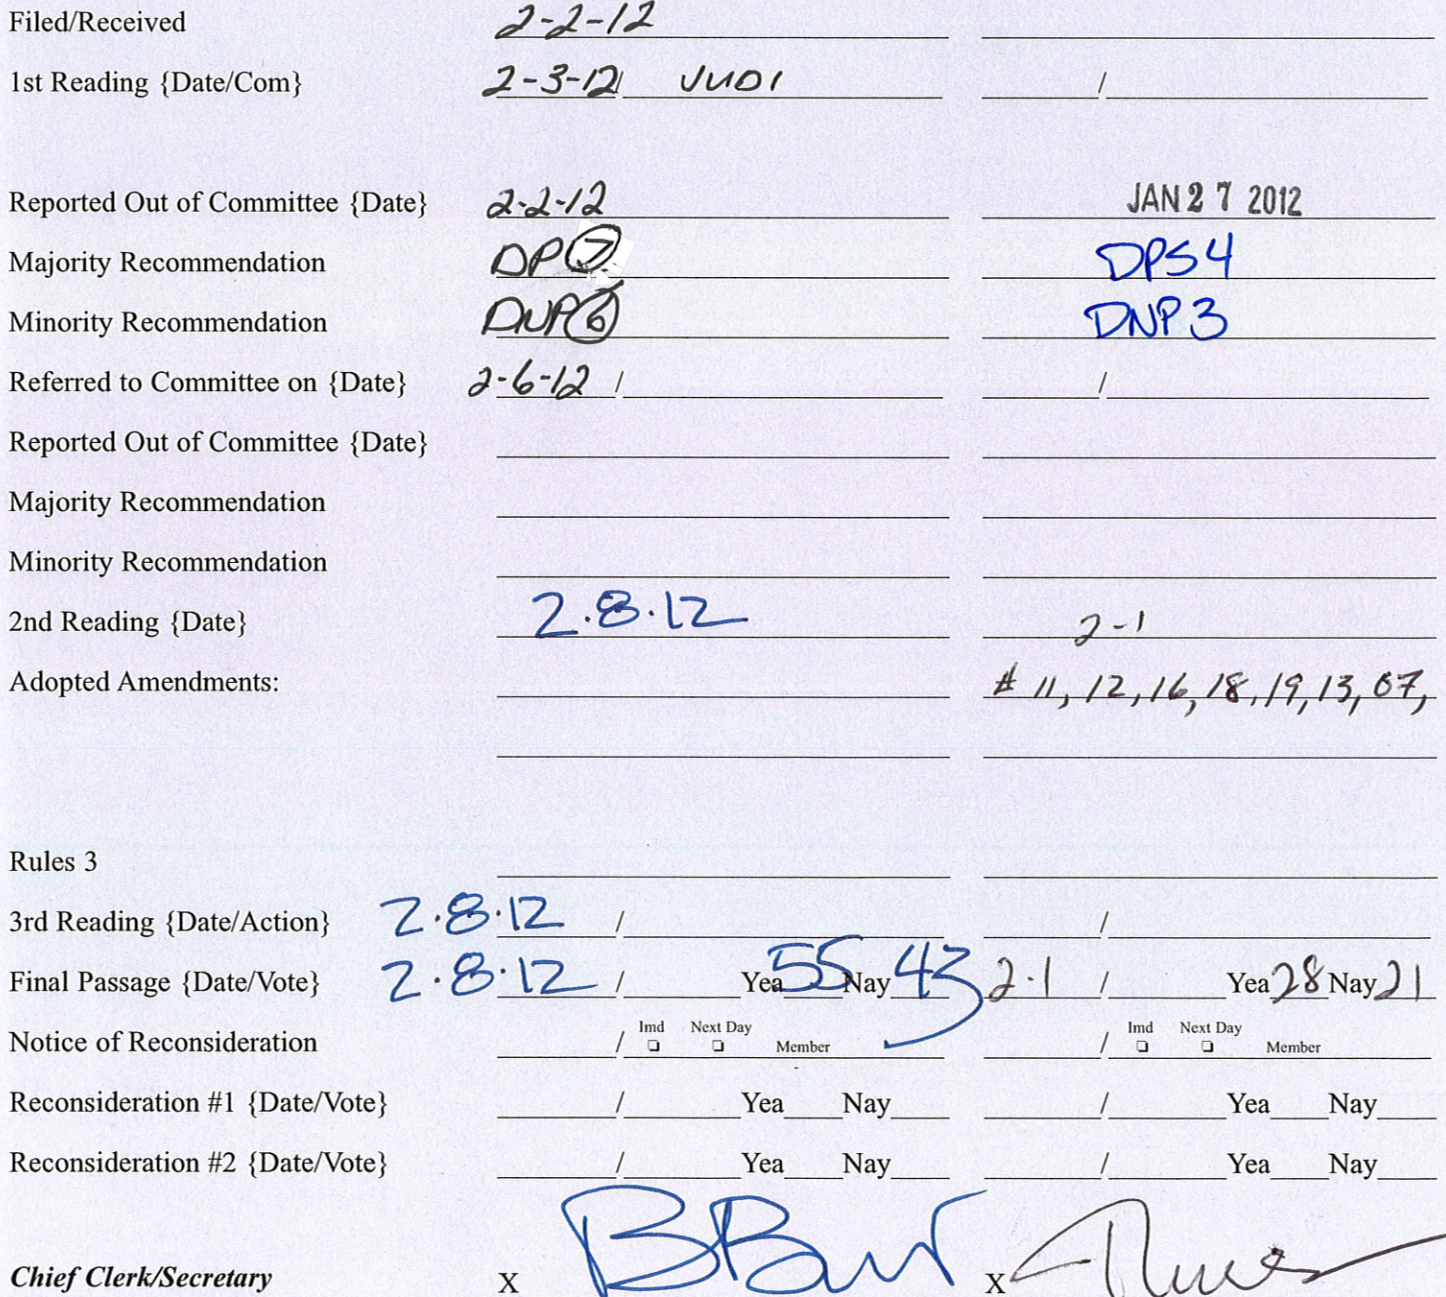 Filed/Received 2-2-12
1st Reading {Date/Com} 2-3-12/ JUDI /
Reported Out of Committee {Date} 2-2-12 JAN 27 2012
Majority Recommendation DP 7 DPS 4
Minority Recommendation DNP 6 DNP 3
Referred to Committee on {Date} 2-6-12 / /
Reported Out of Committee {Date}
Majority Recommendation
Minority Recommendation
2nd Reading {Date} 2.8.12 2-1
Adopted Amendments: # 11, 12, 16, 18, 19, 13, 07,
Rules 3
3rd Reading {Date/Action} 2.8.12 / /
Final Passage {Date/Vote} 2.8.12 / Yea 55 Nay 43 2.1 / Yea 28 Nay 21
Notice of Reconsideration / Imd Next Day Member / Imd Next Day Member
Reconsideration #1 {Date/Vote} / Yea Nay / Yea Nay
Reconsideration #2 {Date/Vote} / Yea Nay / Yea Nay
Chief Clerk/Secretary X X